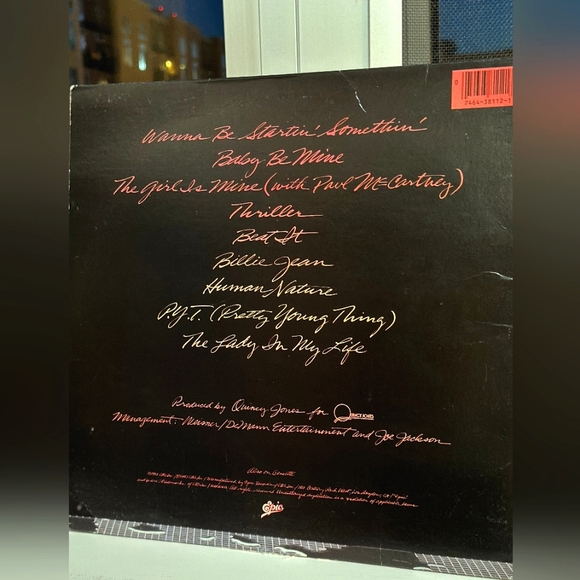 0
7464-38112-1
Wanna Be Startin' Somethin'
Baby Be Mine
The Girl Is Mine (with Paul McCartney)
Thriller
Beat It
Billie Jean
Human Nature
P.Y.T. (Pretty Young Thing)
The Lady In My Life
Produced by Quincy Jones for
Management: Weisner/DeMann Entertainment and Joe Jackson
Also on Cassette
Epic